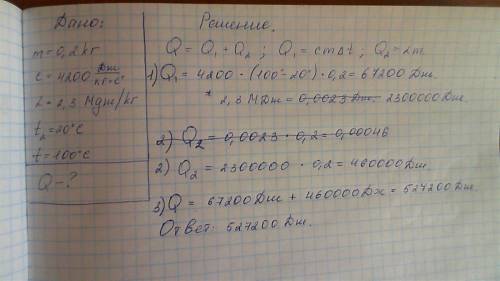 Дано:
m = 0,2 кг
c = 4200 Дж/кг·c°
λ = 2,3 Mдж/кг
t₀ = 20°C
t = 100°C
Q - ?
Решение.
Q = Q₁ + Q₂ ; Q₁ = cmΔt ; Q₂ = λm
1) Q₁ = 4200 · (100° - 20°) · 0,2 = 67200 Дж.
* 2,3 МДж = 0,0023 Дж. 2300000 Дж.
2) Q₂ = 0,0023 · 0,2 = 0,00046
2) Q₂ = 2300000 · 0,2 = 460000 Дж.
3) Q = 67200 Дж + 460000 Дж = 527200 Дж.
Ответ: 527200 Дж.